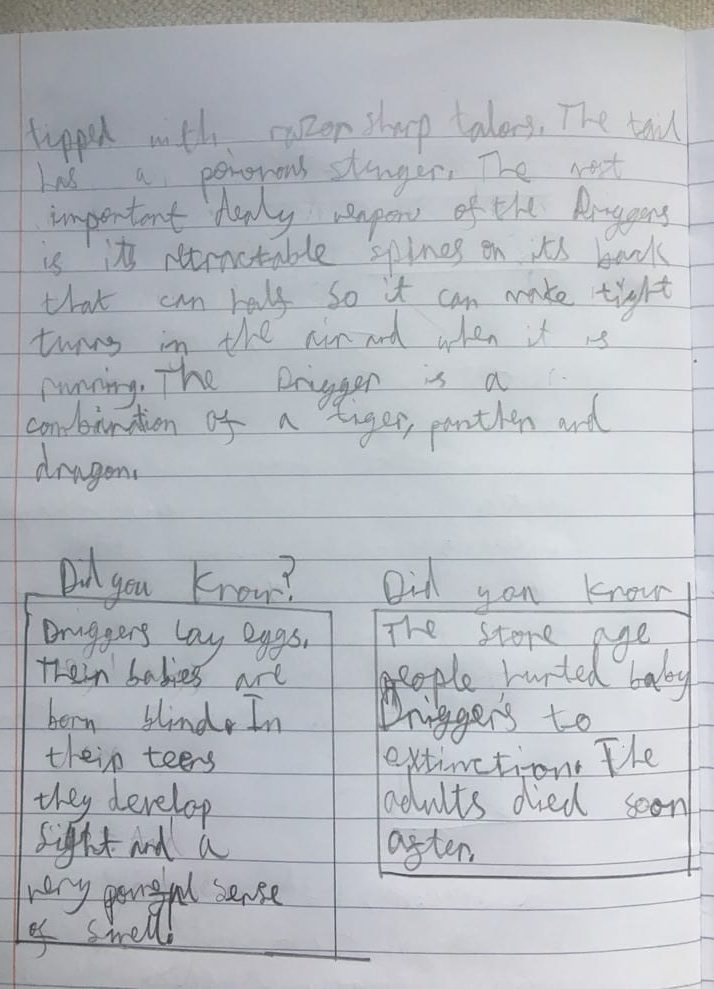 tipped with razor sharp talons. The tail
has a poisonous stinger. The most
important dealy weapon of the Driggers
is its retractable spines on its back
that can help so it can make tight
turns in the air and when it is
running. The Drigger is a
combination of a tiger, panther and
dragon.
Did you know?
Driggers lay eggs.
Their babies are
born blind. In
their teens
they develop
sight and a
very powerful sense
of smell.
Did you know
The stone age
people hunted baby
Driggers to
extinction. The
adults died soon
after.